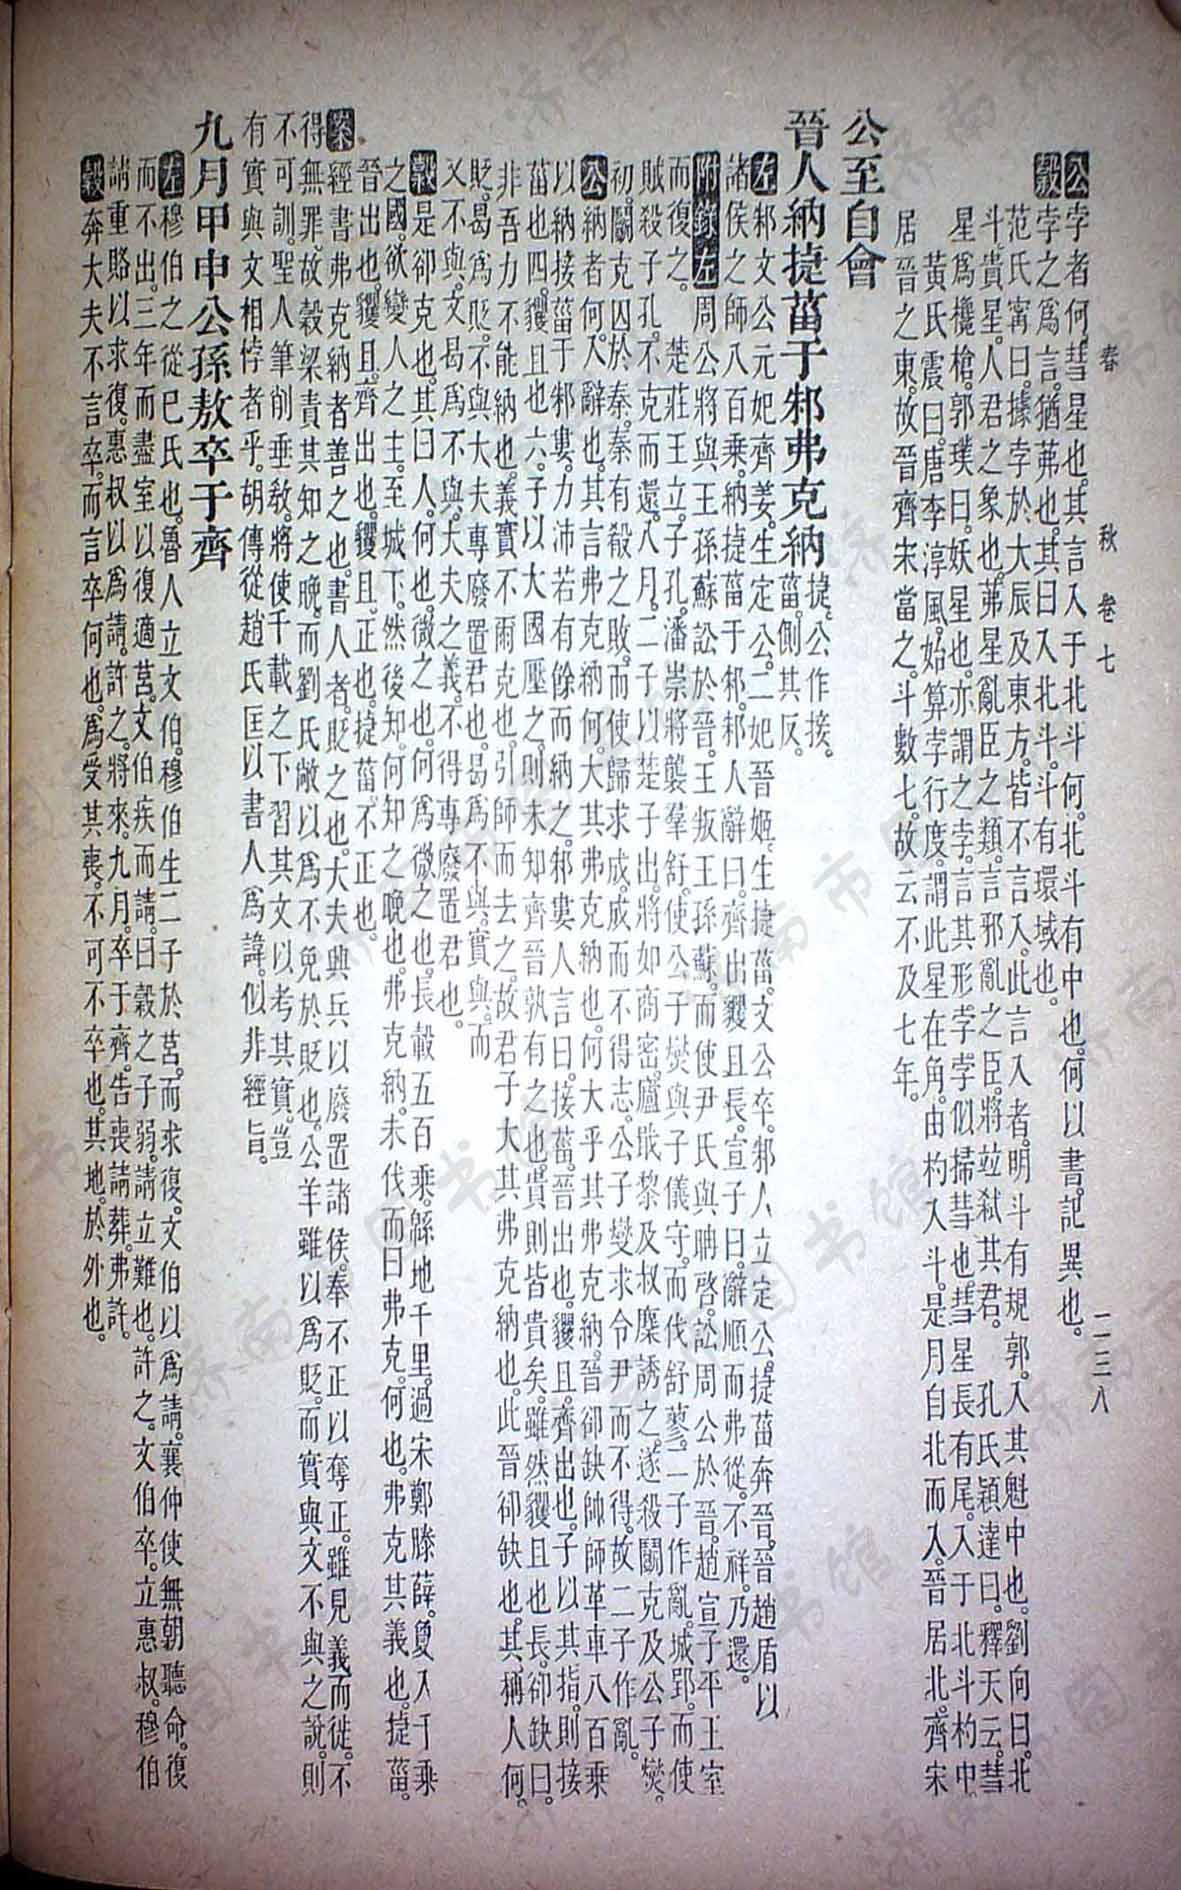 春秋 卷七 二三八
公孛者何。彗星也。其言入于北斗何。北斗有中也。何以書。記異也。
穀孛之爲言。猶茀也。其曰入北斗。斗有環域也。
范氏甯曰。據孛於大辰及東方。皆不言入。此言入者。明斗有規郭。入其魁中也。劉向曰。北
斗。貴星。人君之象也。茀星亂臣之類。言邪亂之臣。將竝弒其君。 孔氏穎達曰。釋天云。彗
星爲欃槍。郭璞曰。妖星也。亦謂之孛。言其形孛孛似掃彗也。彗星長有尾。入于北斗杓中。
黃氏震曰。唐李淳風。始算孛行度。謂此星在角。由杓入斗。是月自北而入。晉居北。齊宋
居晉之東。故晉齊宋當之。斗數七。故云不及七年。
公至自會
晉人納捷菑于邾弗克納捷。公作接。菑。側其反。
左邾文公元妃齊姜。生定公。二妃晉姬。生捷菑。文公卒。邾人立定公。捷菑奔晉。晉趙盾以
諸侯之師八百乘。納捷菑于邾。邾人辭曰。齊出貜且長。宣子曰。辭順而弗從。不祥。乃還。
附錄左周公將與王孫蘇訟於晉。王叛王孫蘇。而使尹氏與聃啓。訟周公於晉。趙宣子平王室
而復之。 楚莊王立。子孔。潘崇將襲羣舒。使公子燮與子儀守。而伐舒蓼。二子作亂。城郢。而使
賊殺子孔。不克而還。八月。二子以楚子出。將如商密。廬戢黎及叔麇誘之。遂殺鬬克及公子燮。
初。鬬克囚於秦。秦有殽之敗。而使歸求成。成而不得志。公子燮求令尹而不得。故二子作亂。
公納者何。入辭也。其言弗克納何。大其弗克納也。何大乎其弗克納。晉郤缺帥師革車八百乘
以納接菑于邾婁。力沛若有餘而納之。邾婁人言曰。接菑。晉出也。貜且。齊出也。子以其指。則接
菑也四。貜且也六。子以大國壓之。則未知齊晉孰有之也。貴則皆貴矣。雖然貜且也長。郤缺曰。
非吾力不能納也。義實不爾克也。引師而去之。故君子大其弗克納也。此晉郤缺也。其稱人何。
貶。曷爲貶。不與大夫專廢置君也。曷爲不與。實與。而
文不與。文曷爲不與。大夫之義。不得專廢置君也。
穀是郤克也。其曰人。何也。微之也。何爲微之也。長轂五百乘。緜地千里。過宋鄭滕薛。敻入千乘
之國。欲變人之主。至城下。然後知。何知之晚也。弗克納。未伐而曰弗克。何也。弗克其義也。捷菑。
晉出也。貜且。齊出也。貜且。正也。捷菑。不正也。
案經書弗克納者善之也。書人者。貶之也。大夫興兵以廢置諸侯。奉不正以奪正。雖見義而徙。不
得無罪。故穀梁責其知之晚。而劉氏敞以爲不免於貶也。公羊雖以爲貶。而實與文不與之說。則
不可訓。聖人筆削垂敎。將使千載之下習其文以考其實。豈
有實與文相悖者乎。胡傳從趙氏匡以書人爲諱。似非經旨。
九月甲申公孫敖卒于齊
左穆伯之從已氏也。魯人立文伯。穆伯生二子於莒。而求復。文伯以爲請。襄仲使無朝聽命。復
而不出。三年而盡室以復適莒。文伯疾而請曰。穀之子弱。請立難也。許之。文伯卒。立惠叔。穆伯
請重賂以求復。惠叔以爲請。許之。將來。九月。卒于齊。告喪請葬。弗許。
穀奔大夫不言卒。而言卒何也。爲受其喪。不可不卒也。其地。於外也。